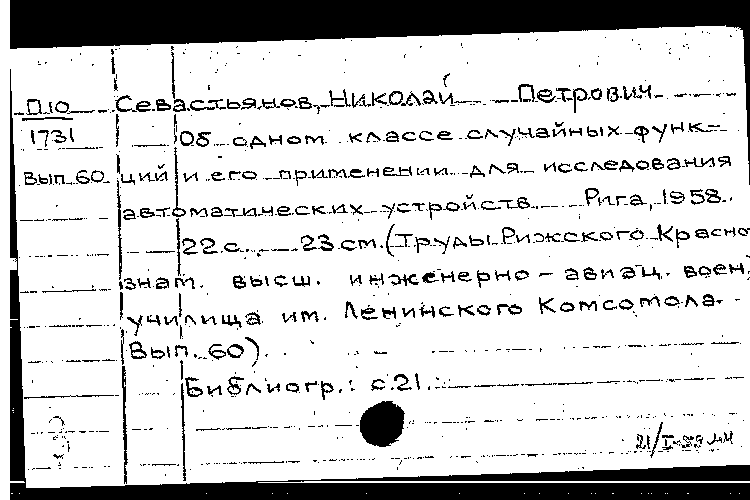 П10 Севастьянов, Николай Петрович
1731 Об одном классе случайных функ-
Вып.60 ций и его применении для исследования
автоматических устройств. Рига, 1958.
22 с. 23 см. (Труды Рижского Красно
знам. высш. инженерно-авиац. воен.
училища им. Ленинского Комсомола.
Вып. 60).
Библиогр.: с. 21.
21/I-59